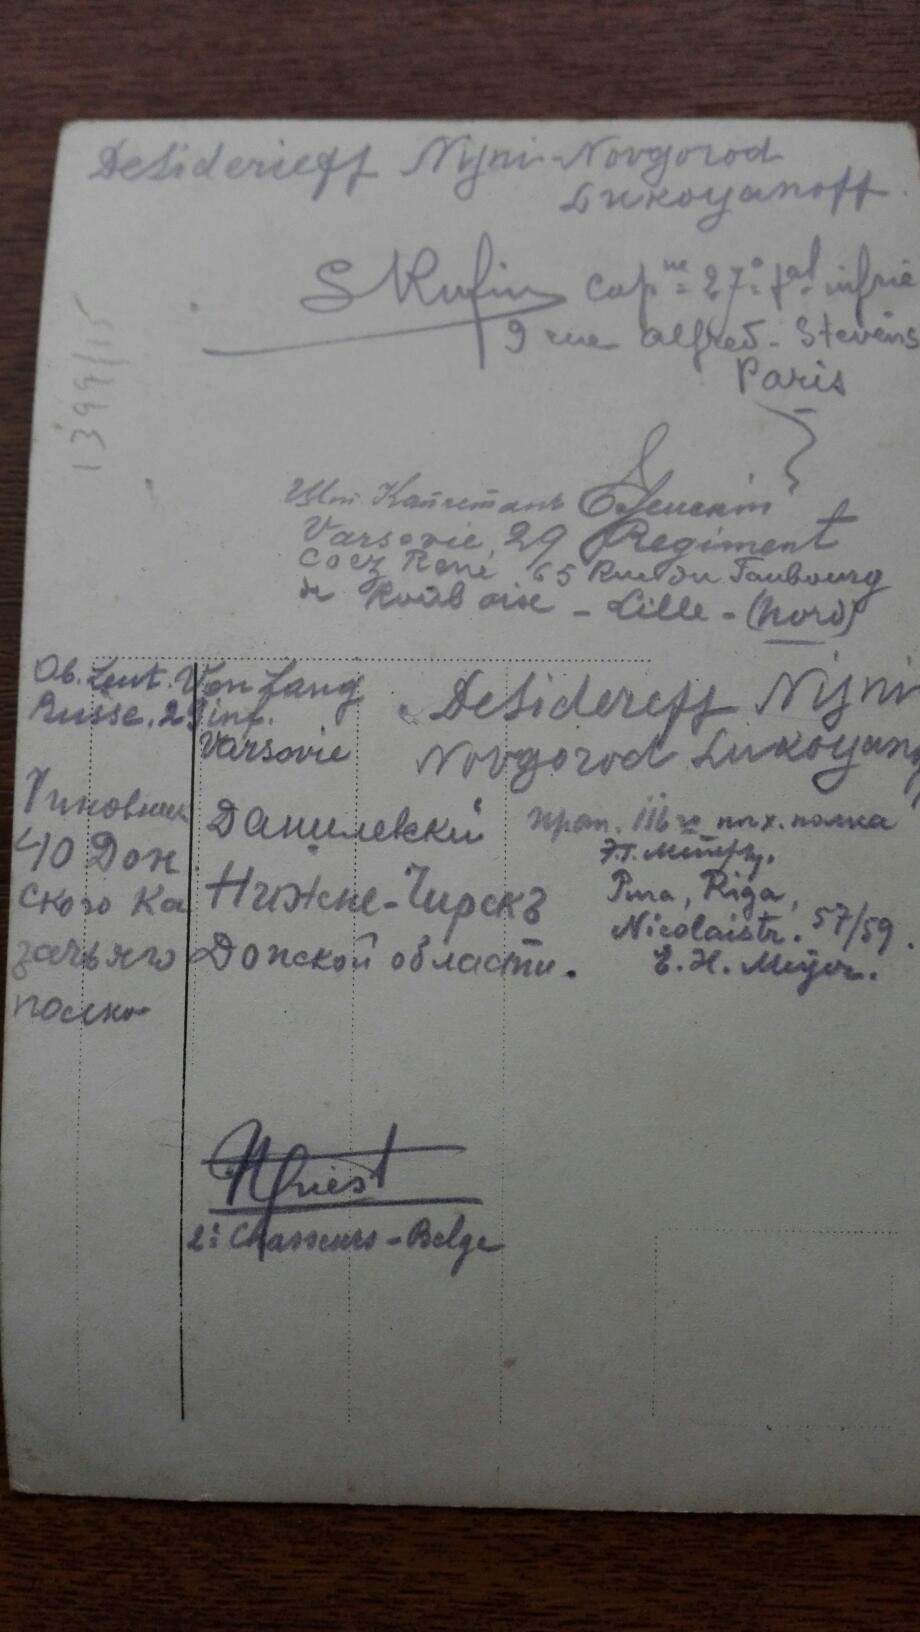 Desiderieff Nijni-Novgorod
Lukoyanoff.
S Rufin cap ne 27e inf rie
9 rue Alfred-Stevens
Paris
1399/15
Шт. Капитанъ
Varsovie, 29 Regiment
René 65 Rue du Faubourg
de Roubaix - Lille - (Nord)
Ob. Leut. Von Lang
Russe. 29 inf.
Varsovie
Desidereff Nijni
Novgorod Lukoyano
Чиновник
40 Дон
ского Ка
зачьяго
полка
Данилевскій
Нижне-Чирскъ
Донской области.
прап. 116го пех. полка
Рига, Riga,
Nicolaistr. 57/59.
E. H. Meyer.
2e Chasseurs-Belge